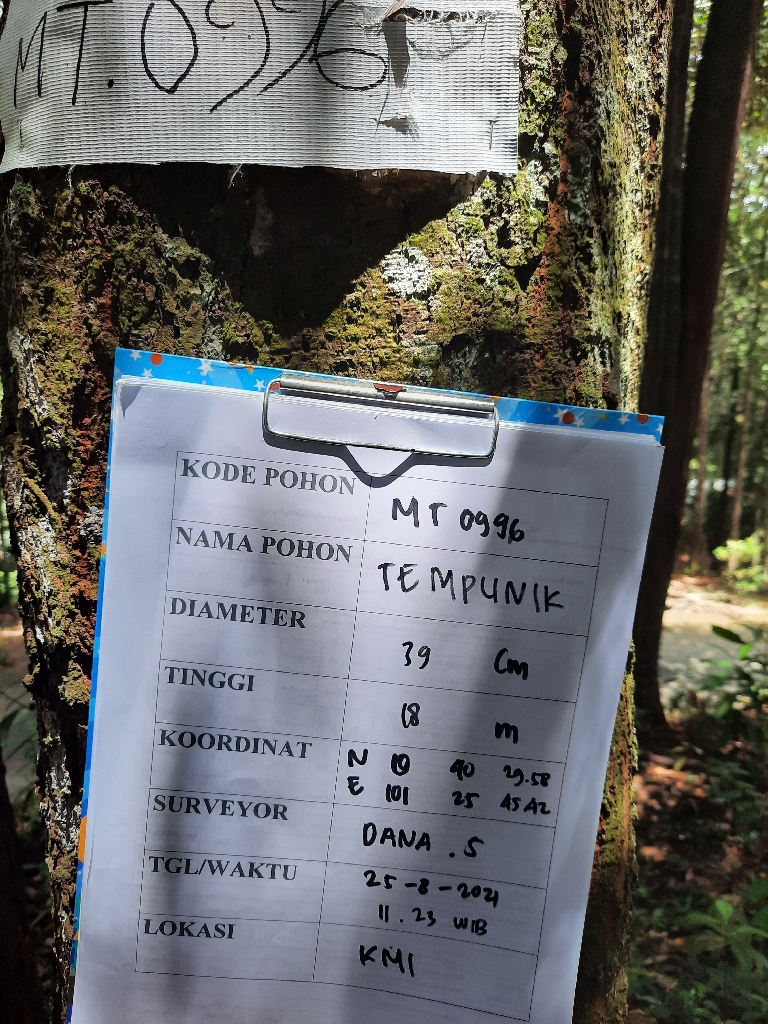 MT.0996
KODE POHON MT 0996
NAMA POHON TEMPUNIK
DIAMETER 39 Cm
TINGGI 18 m
KOORDINAT N 10 40 29.58
E 101 25 45.42
SURVEYOR DANA . S
TGL/WAKTU 25-8-2021
11.23 WIB
LOKASI KMI